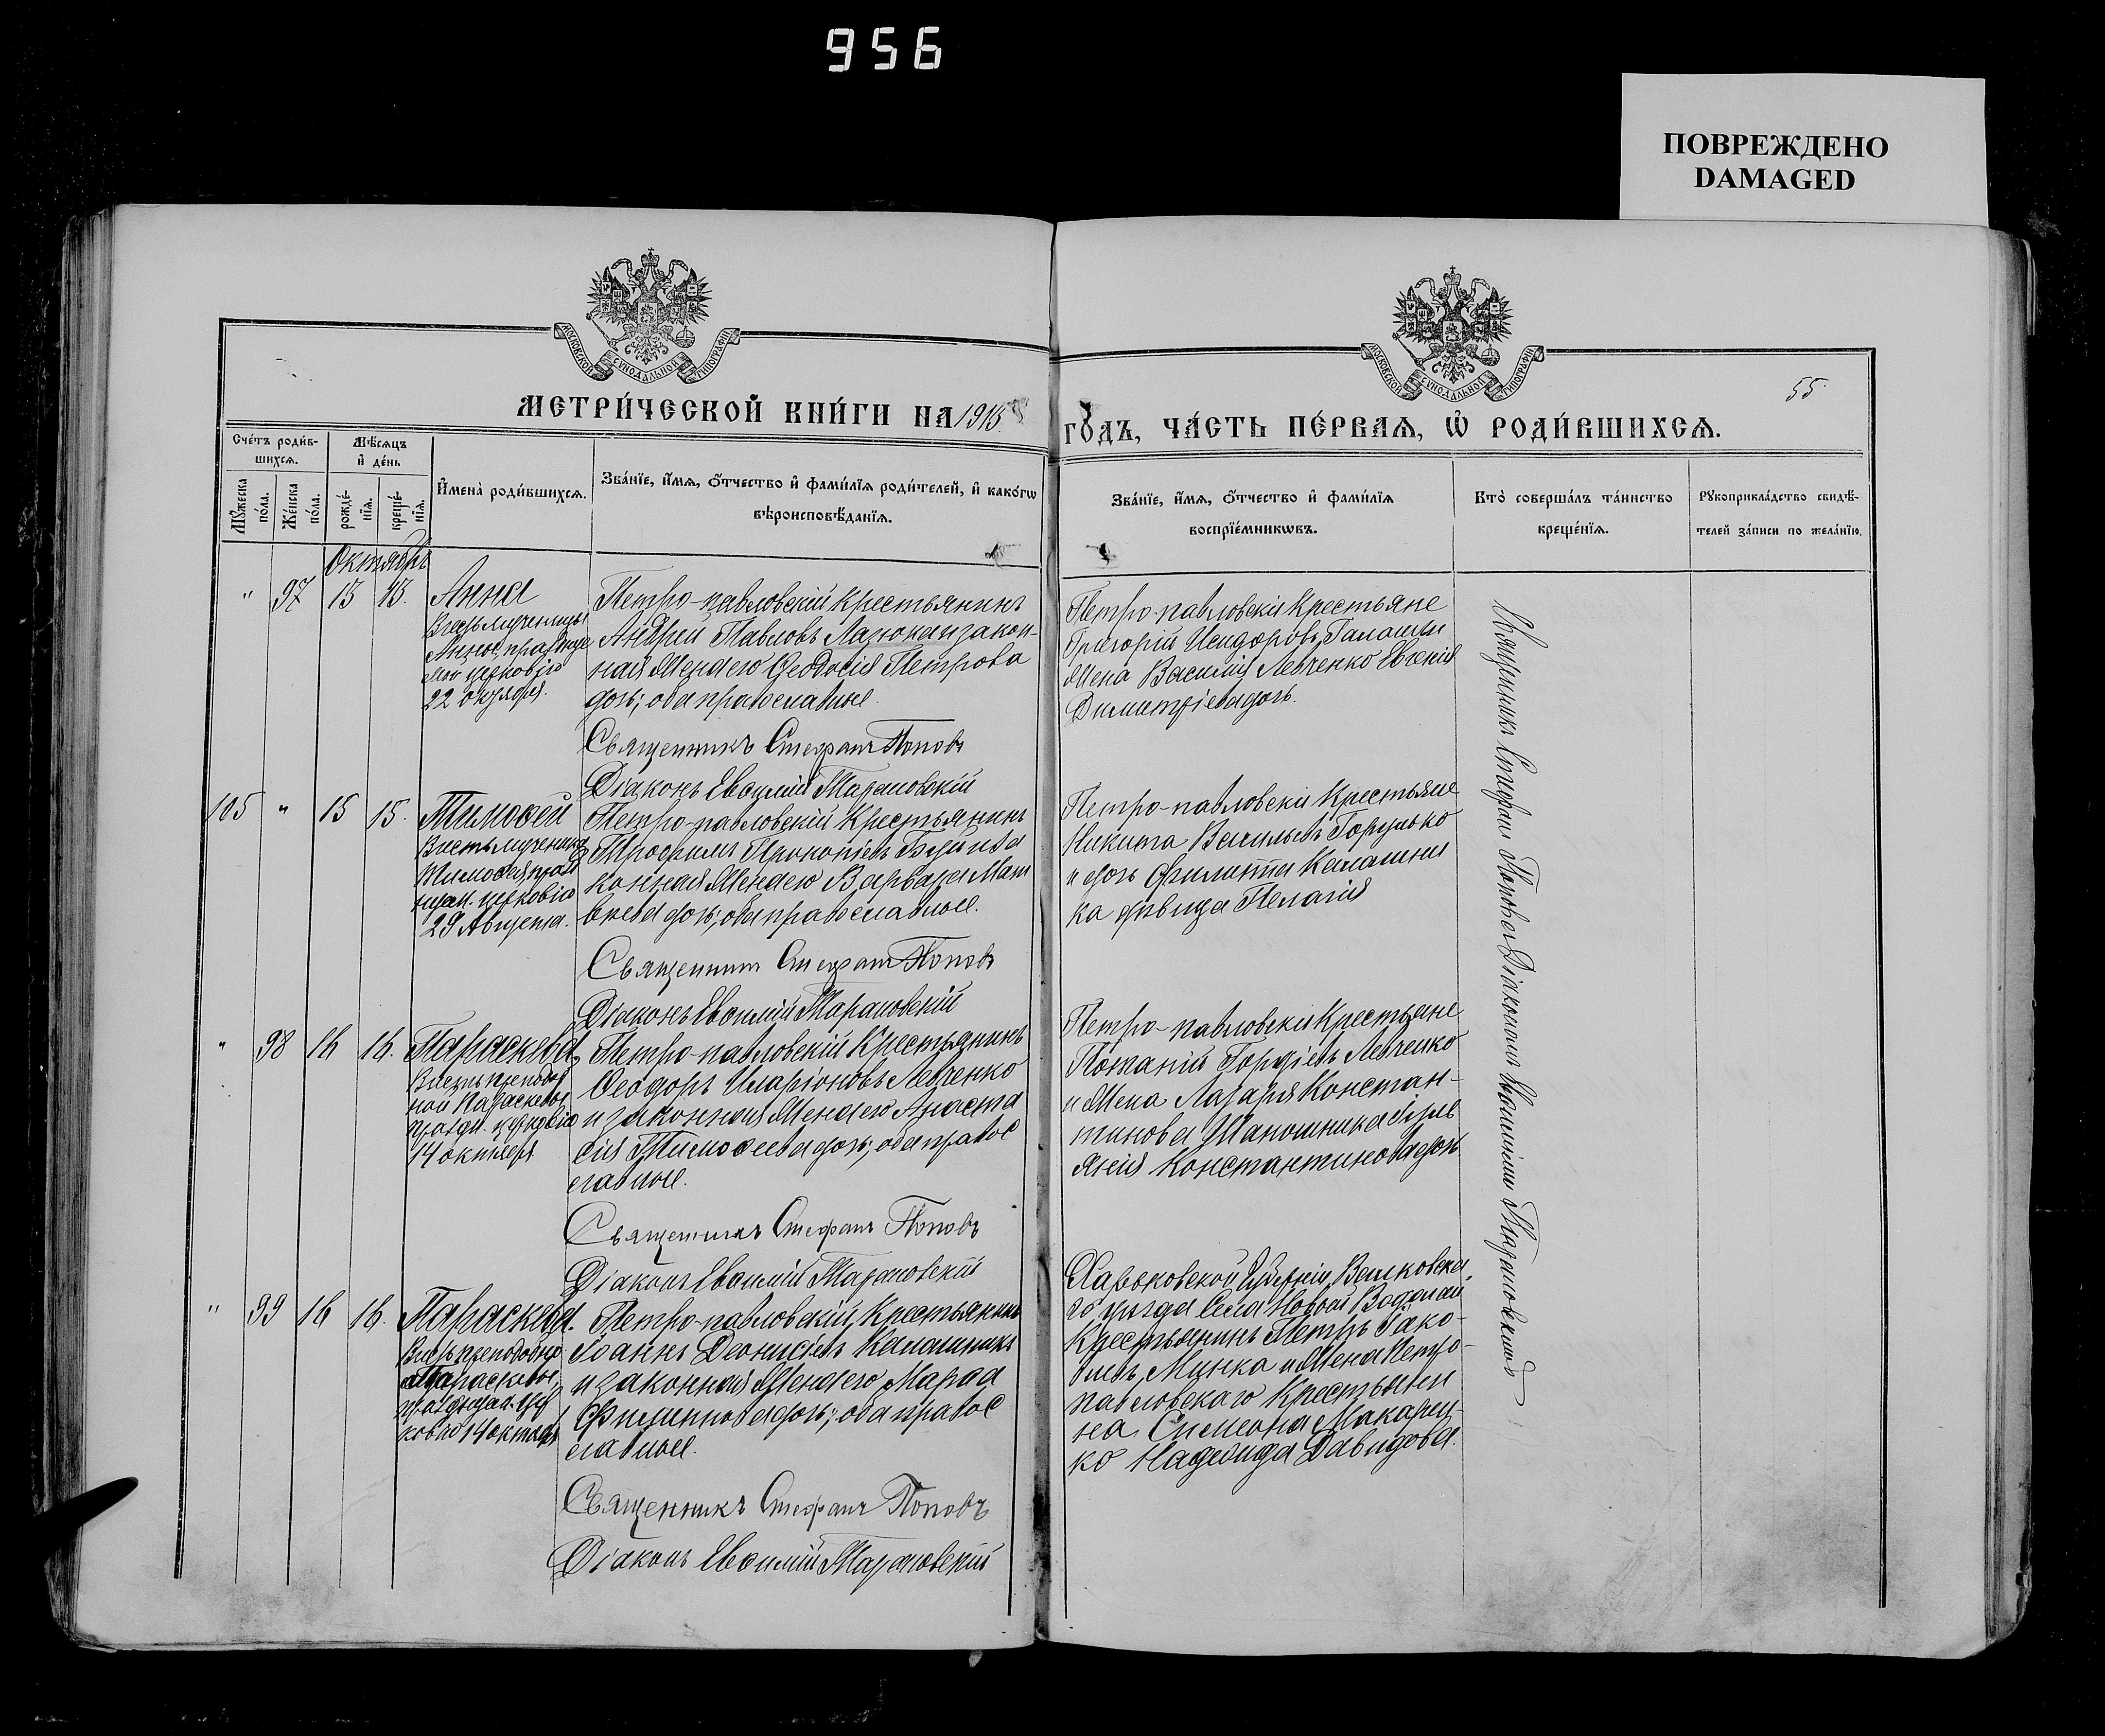 956
ПОВРЕЖДЕНО
DAMAGED
МОСКОВСКОЙ СѴНОДАЛЬНОЙ ТИПОГРАФІИ
МОСКОВСКОЙ СѴНОДАЛЬНОЙ ТИПОГРАФІИ
55.
МЕТРИ́ЧЕСКОЙ КНИ́ГИ НА 1915
ГО́ДЪ, ЧА́СТЬ ПЕ́РВАѦ, Ѡ҆ РОДИ́ВШИХСѦ.
Сче́тъ роди́в-
шихсѧ.
Мѣ́сѧцъ
и҆ де́нь
Мꙋ́жеска
по́ла.
Же́нска
по́ла.
рожде́-
нїѧ.
креще́-
нїѧ.
И҆мена̀ роди́вшихсѧ.
Зва́нїе, и҆́мѧ, ѻ҆́тчество и҆ фами́лїѧ роди́телей, и҆ како́гѡ
вѣроисповѣ́данїѧ.
Зва́нїе, и҆́мѧ, ѻ҆́тчество и҆ фами́лїѧ
воспрїе́мникѡвъ.
Кто̀ соверша́лъ та́инство
креще́нїѧ.
Рꙋкоприкла́дство свидѣ́-
телей за́писи по жела́нїю.
Октябрь
" 97 13 13. Анна
Въ честь мученицы
Анны, праздн
церковію
22 октября.
Петро-павловскій крестьянинъ
Андрей Павловъ и закон-
ная жена его Ѳеодосія Петрова
дочь; оба православные.
Священникъ Стефанъ Поповъ
Діаконъ Евѳимій Тарановскій
Петро-павловскіе крестьяне
Григорій Исидоровъ
жена Василія Левченко Евгенія
Димитріева дочь.
105 " 15 15. Тимоѳей
Въ честь мученика
Тимоѳея, празд
церковію
29 Августа.
Петро-павловскій крестьянинъ
Трофимъ Прокопіевъ
конная жена его Варвара Мат
веева дочь; оба православные.
Священникъ Стефанъ Поповъ
Діаконъ Евѳимій Тарановскій
Петро-павловскіе крестьяне
Никита Васильевъ
и дочь Филиппа Калашни
ка дѣвица Пелагія
" 98 16 16. Параскева
Въ честь преподоб
ной Параскевы,
праздн. церковію
14 октября
Петро-павловскій крестьянинъ
Ѳеодоръ Иларіоновъ Левченко
и законная жена его Анаста
сія Тимоѳеева дочь; оба правос
лавные.
Священникъ Стефанъ Поповъ
Діаконъ Евѳимій Тарановскій
Петро-павловскіе крестьяне
Гордіевъ Левченко
и жена Лазаря Констан-
тинова
Константинова дочь
" 99 16 16. Параскева.
Въ честь преподобной
Параскевы,
празднуем. цер
ковію 14 октября
Петро-павловскій крестьянинъ
Іоаннъ Діонисіевъ Калашникъ
и законная жена его
Филиппова дочь; оба правос
лавные.
Священникъ Стефанъ Поповъ
Діаконъ Евѳимій Тарановскій
Харьковской губерніи, Валковска
го уѣзда села Новой Водолаги
крестьянинъ Петръ Іако-
влевъ и жена Петро-
павловскаго крестьяни
на Симеона Макарен-
ко Надежда Давидова.
Священникъ Стефанъ Поповъ съ Діакономъ Евѳиміемъ Тарановскимъ